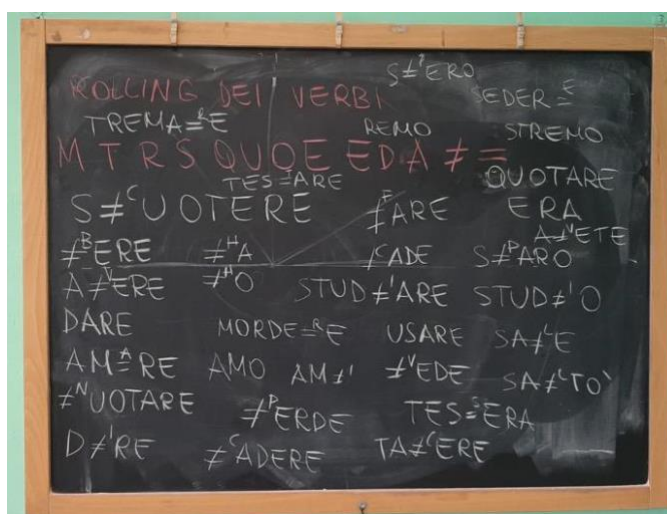 S≠ᴾERO
ROLLING DEI VERBI SEDER=ᴱ
TREMA=ᴿE REMO STREMO
M T R S Q U O E E D A ≠ =
TES=ARE QUOTARE
S≠ᶜUOTERE ≠ᶠARE ERA
A≠ⱽETE
≠ᴮERE ≠ᴴA ≠ᶜADE S≠ᴾARO
A≠ⱽERE ≠ᴴO STUD≠ᴵARE STUD≠ᴵO
DARE MORDE=ᴿE USARE SA≠ᴸE
AM=ᴬRE AMO AM≠ᴵ ≠ⱽEDE SA≠ᴸTO'
≠ᴺUOTARE ≠ᴾERDE TES=ˢERA
D≠ᴵRE ≠ᶜADERE TA≠ᶜERE